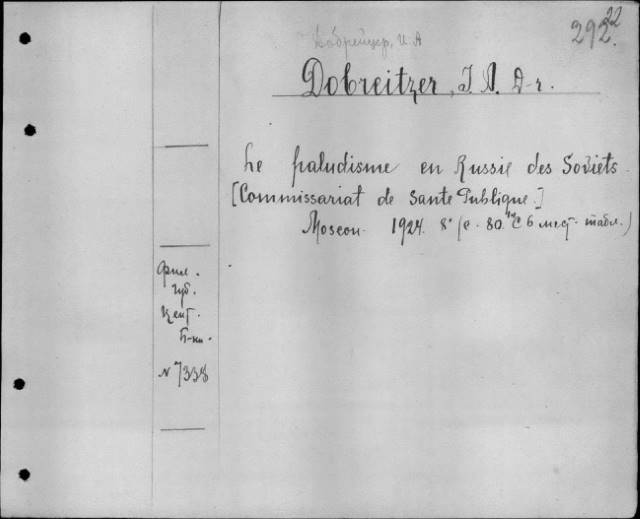 292²²
Добрейцер, И. А
Dobreitzer, I. A. D-r.
Le paludisme en Russie des Soviets
[Commissariat de Sante Publique.]
Moscou. 1924. 8° (с. 80. С 6 табл.)
Фил.
губ.
Цент.
Б-ки.
№ 7338